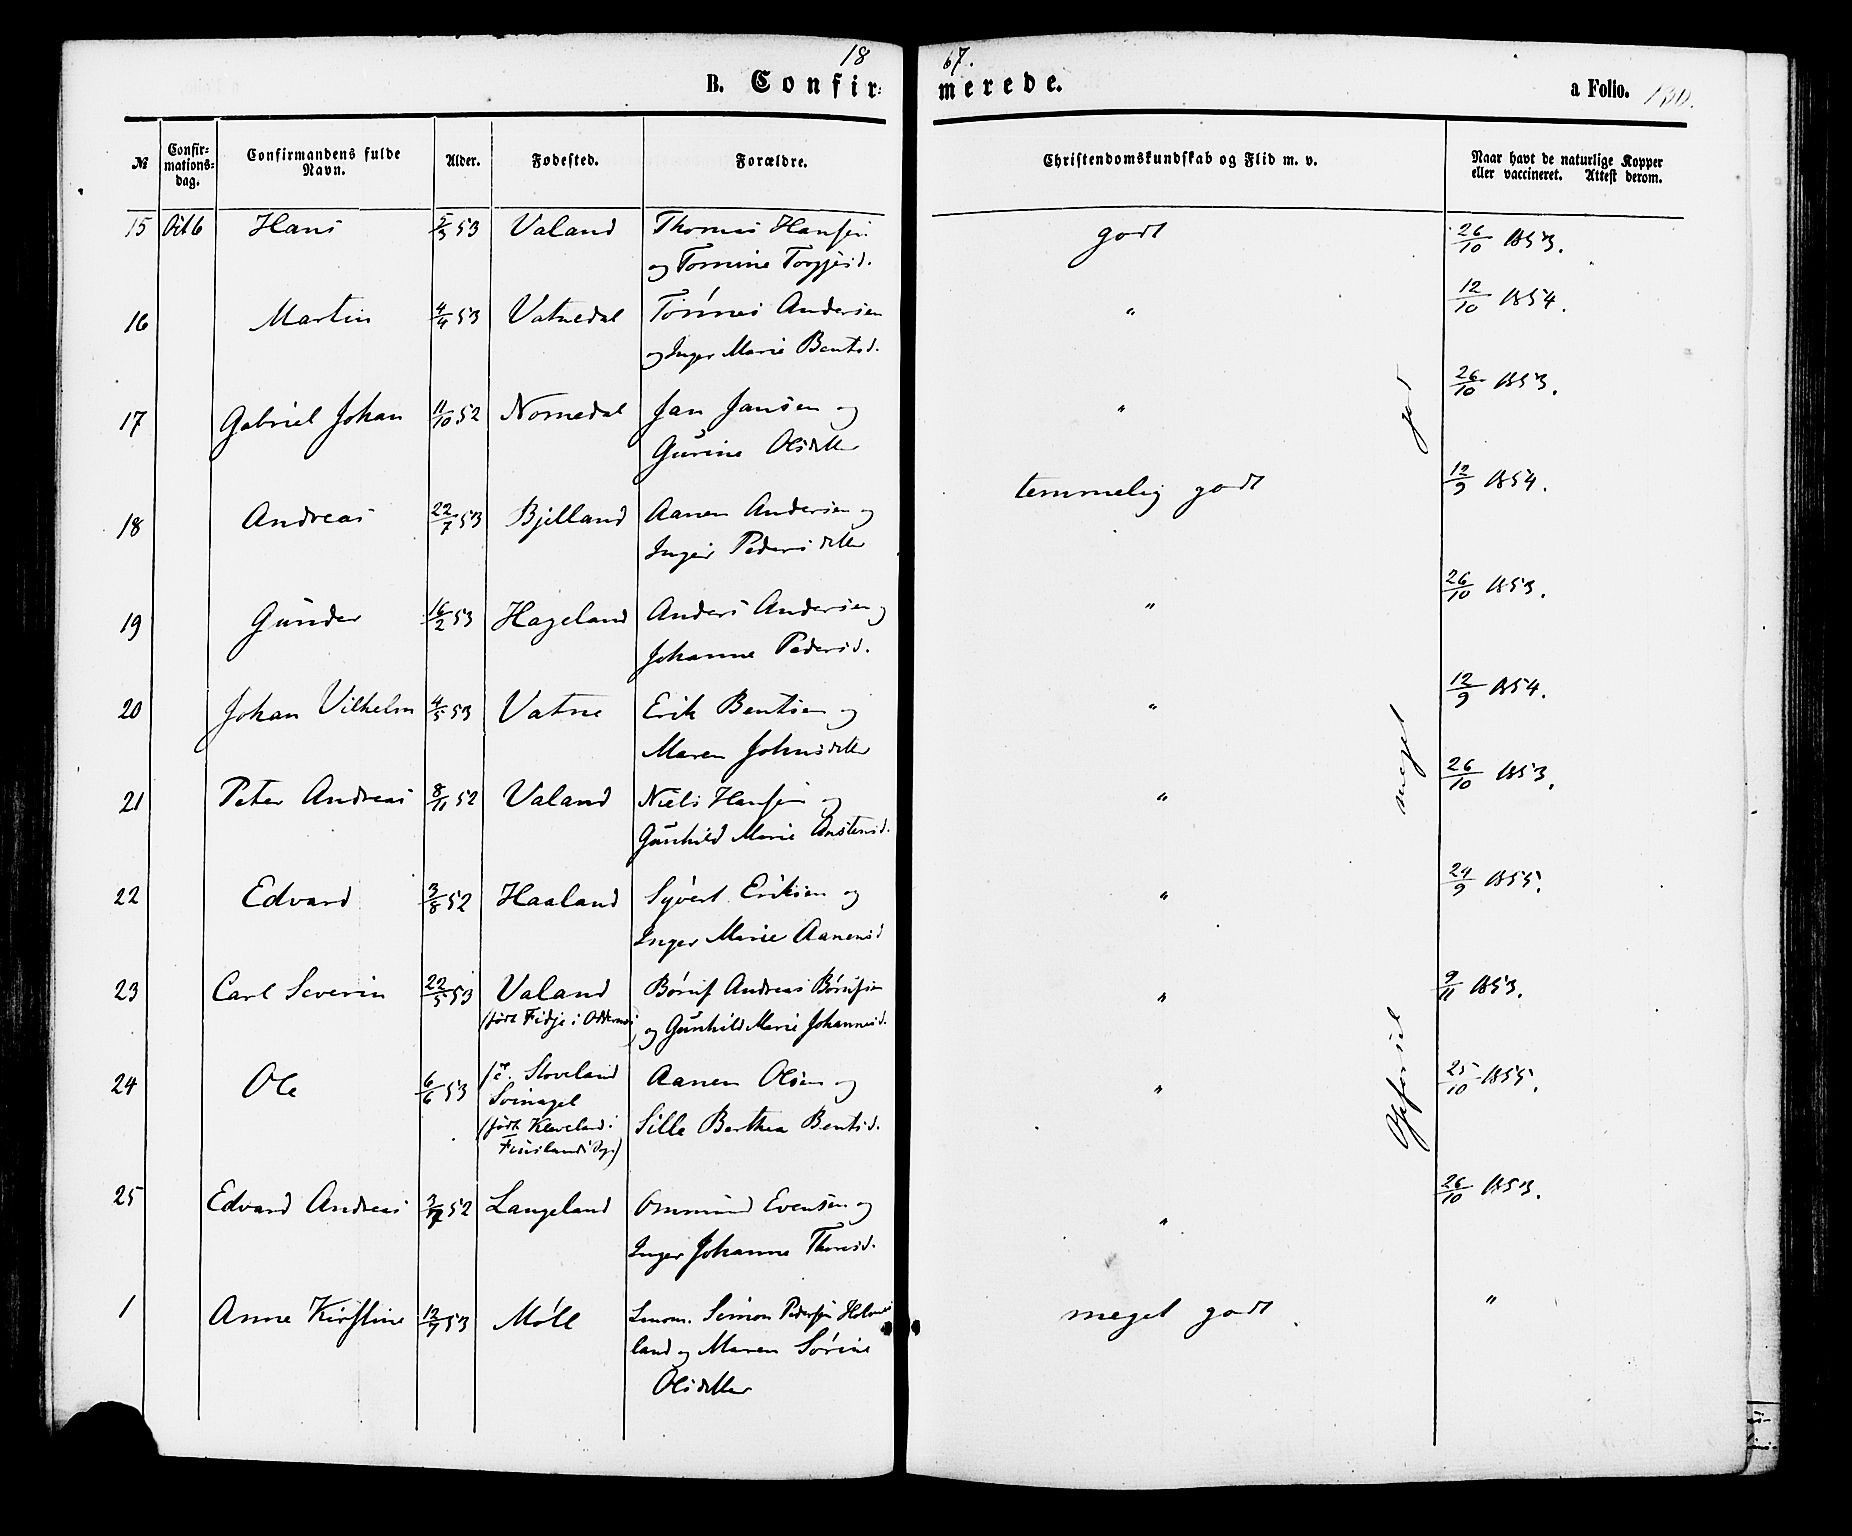 18 67.
B. Confir= merede. a Folio. 130.
№ Confir=mations=dag. Confirmandens fulde Navn. Alder. Fødested. Forældre. Christendomskundskab og Flid m. v. Naar havt de naturlige Kopper eller vaccineret. Attest derom.
15 Oct 6 Hans 5/3 53 Valand Thomas Hansen godt 26/10 1853.
og Tomine Torgjusd.
16 Martin 4/4 53 Vatnedal Tønnes Andersen " 12/10 1854.
og Inger Marie Bentsd.
17 Gabriel Johan 11/10 52 Nomedal Jan Jansen og " 26/10 1853.
Gurine Olsdtter
18 Andreas 22/7 53 Bjelland Aanen Andersen og temmelig godt 12/9 1854.
Inger Pedersdtter
19 Gunder 16/2 53 Hageland Anders Andersen og " 26/10 1853.
Johanne Pedersd.
20 Johan Vilhelm 4/5 53 Vatne Erik Bentsen og " 12/9 1854.
Maren Johnsdtter
21 Peter Andreas 8/11 52 Valand Niels Hansen og " 26/10 1853.
Gunhild Marie Ønstensd.
22 Edvard 3/8 52 Haaland Syvert Eriksen og " 24/9 1855.
Inger Marie Aanensd
23 Carl Severin 22/5 53 Valand Børuf Andreas Børufsen " 9/11 1853.
(født Fidje i Oddernes) og Gunhild Marie Johannesd.
24 Ole 6/6 53 Stoveland Aanen Olsen og " 25/10 1855.
Svinagel
(født Kleveland i Sille Berthea Bentsd.
Finslands Sogn)
25 Edvard Andreas 3/7 52 Langeland Ommund Evensen og " 26/10 1853.
Inger Johanne Thoresd.
1 Anne Kirstine 12/7 53 Møll Simon Pedersen Holme meget godt "
land og Maren Sørine
Olsdtter
Opførsel meget god